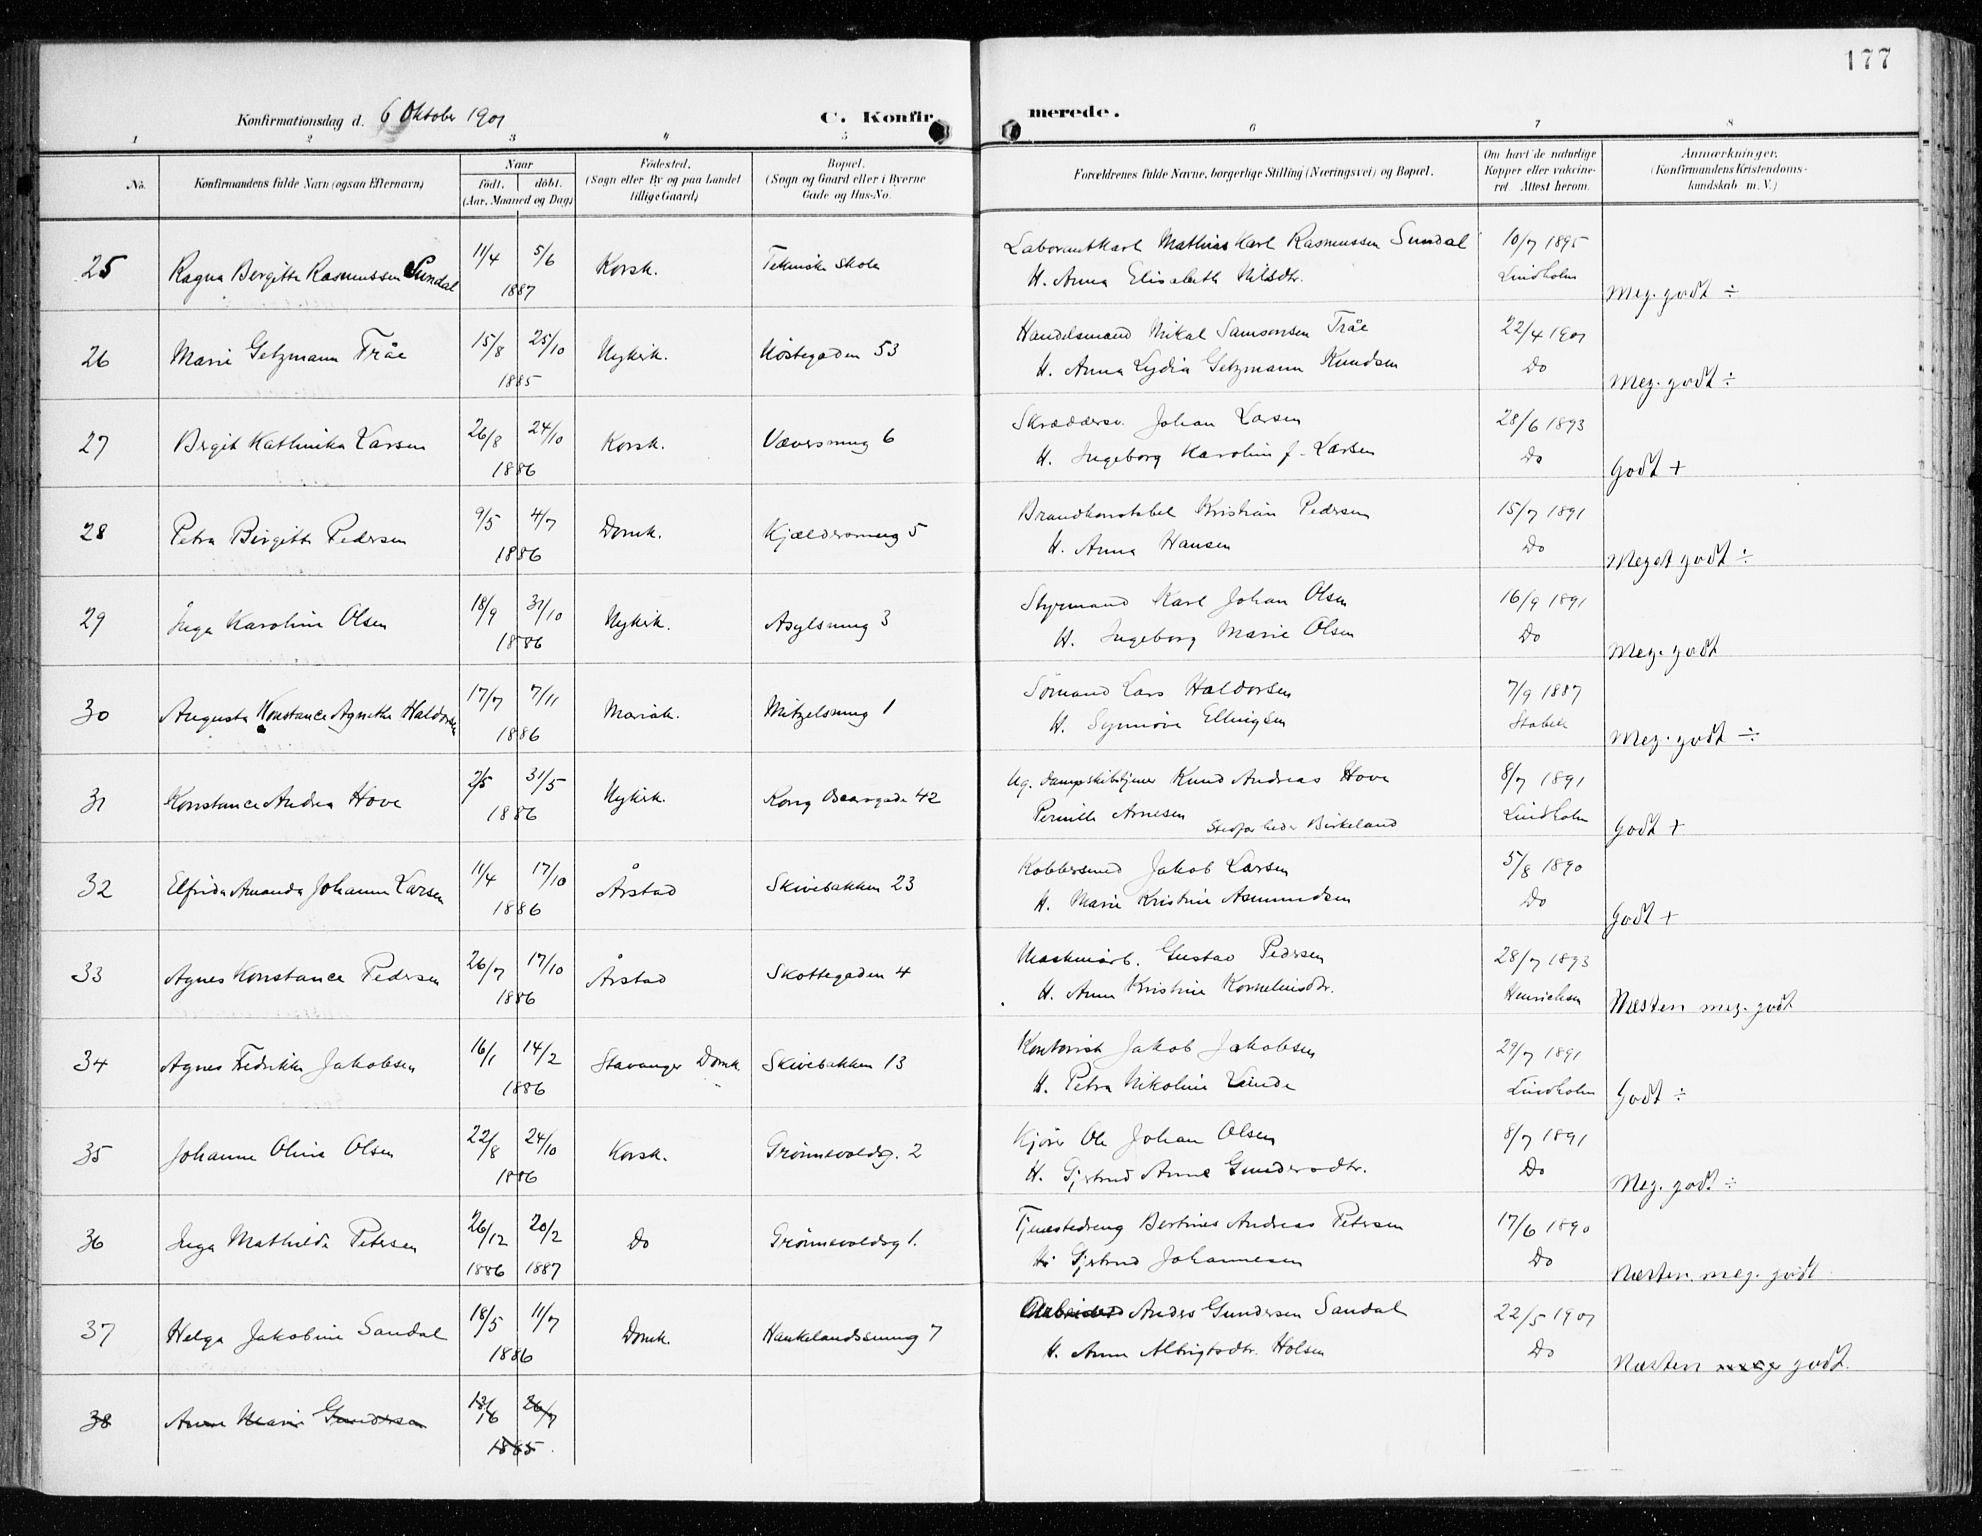 177
Konfirmationsdag d. 6 Oktober 1901 C. Konfirmerede.
1 2 3 4 5 6 7 8
No. Konfirmandens fulde Navn (ogsaa Efternavn) Naar födt. döbt. (Aar, Maaned og Dag) Födested. (Sogn eller By og paa Landet tillige Gaard) Bopæl. (Sogn og Gaard eller i Byerne Gade og Hus-No. Forældrenes fulde Navne, borgerlige Stilling (Næringsvei) og Bopæl. Om havt de naturlige Kopper eller vakcineret. Attest herom. Anmærkninger. (Konfirmandens Kristendomskundskab m. V.)
25 Ragna Bergitte Rasmussen Sundal 11/4 5/6 1887 Korsk. Tekniske skole Laborantkarl Mathias Karl Rasmussen Sundal 10/7 1895
H. Anna Elisabeth Nilsdtr. Lindholm Meg. godt ÷
26 Marie Getzmann Tråe 15/8 25/10 1885 Nykirk. Nöstegaden 53 Handelsmand Mikal Samsonsen Tråe 22/4 1901
H. Anna Lydia Getzmann Knudsen Do Meg. godt ÷
27 Bergit Kathinka Larsen 26/8 24/10 1886 Korsk. Væversmug 6 Skræddersv. Johan Larsen 28/6 1893
H. Ingeborg Karolin f. Larsen Do Godt +
28 Petra Birgitte Pedersen 9/5 4/7 1886 Domk. Kjældersmug 5 Brandkonstabel Kristian Pedersen 15/7 1891
H. Anna Hansen Do Meget godt ÷
29 Inga Karoline Olsen 18/9 31/10 1886 Nykirk. Asylsmug 3 Styrmand Karl Johan Olsen 16/9 1891
H. Ingeborg Marie Olsen Do Meg. godt
30 Augusta Konstance Agnethe Haldorsen 17/7 7/11 1886 Mariak. Mitzelsmug 1 Sömand Lars Haldorsen 7/9 1887
H. Synnöve Ellingsen Stabell Meg. godt ÷
31 Konstance Andrea Hove 2/5 31/5 1886 Nykirk. Kong Oscarsgade 42 Ug. Dampskibstjener Knud Andreas Hove 8/7 1891
Pernille Arnesen Stedfar heder Birkeland Lindholm Godt +
32 Elfrida Amanda Johanne Larsen 11/4 17/10 1886 Årstad Skivebakken 23 Kobbersmed Jakob Larsen 5/8 1890
H. Marie Kristine Asmundsen Do Godt +
33 Agnes Konstance Pedersen 26/7 17/10 1886 Årstad Skottegaden 4 Maskinarb. Gustav Pedersen 28/7 1893
H. Anne Kristine Korneliusdtr. Henrichsen Næsten meg. godt
34 Agnes Fredrikke Jakobsen 16/1 14/2 1886 Stavanger Domk. Skivebakken 13 Kontorist Jakob Jakobsen 29/7 1891
H. Petra Nikoline Linde Lindholm Godt ÷
35 Johanne Oline Olsen 22/8 24/10 1886 Korsk. Grönnevoldsg. 2 Kjörer Ole Johan Olsen 8/7 1891
H. Gjertrud Anne Gundersdtr. Do Meg. godt ÷
36 Inga Mathilde Petersen 26/12 1886 20/2 1887 Do Grönnevoldsg 1. Tjenestedreng Bertines Andreas Petersen 17/6 1890
H. Gjertrud Johannesen Do Næsten meg. godt
37 Helga Jakobine Sandal 18/5 11/7 1886 Domk. Haukelandssmug 7 Arbeider Anders Gundersen Sandal 22/5 1901
H. Anne Albrigtsdtr. Holsen Do Næsten meg godt.
38 Anne Marie Gundersen 26/7 1885.